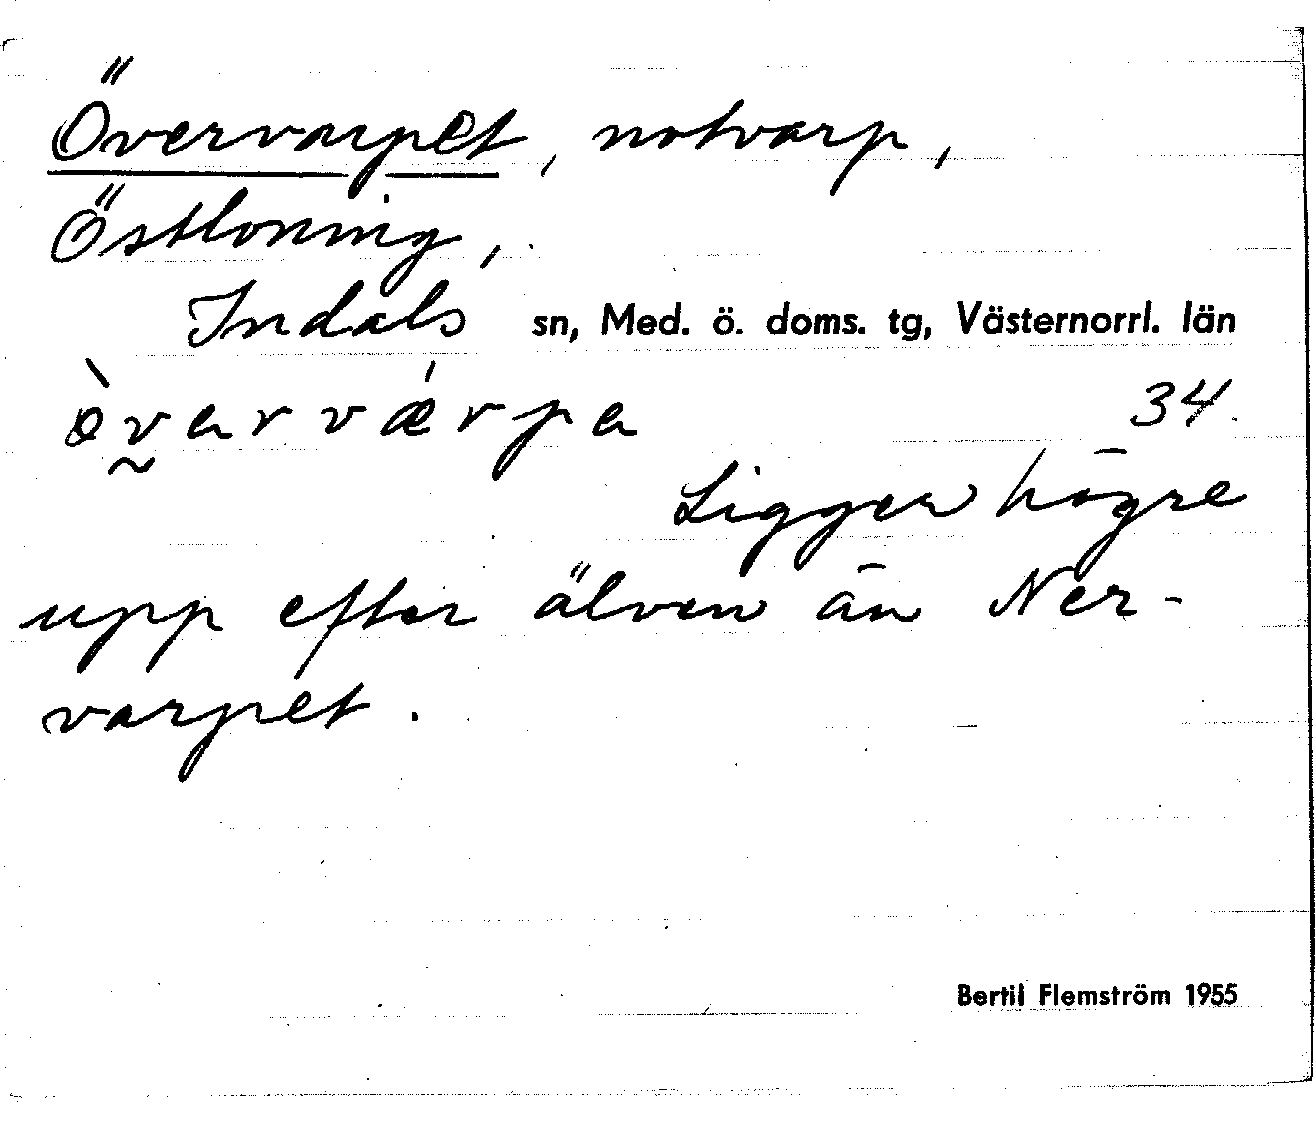 Övervarpet, notvarp,
Östloning,
Indals sn, Med. ö. doms. tg, Västernorrl. län
ø̀varvǽrpa 34.
Ligger högre
upp efter älven än Ner-
varpet.
Bertil Flemström 1955